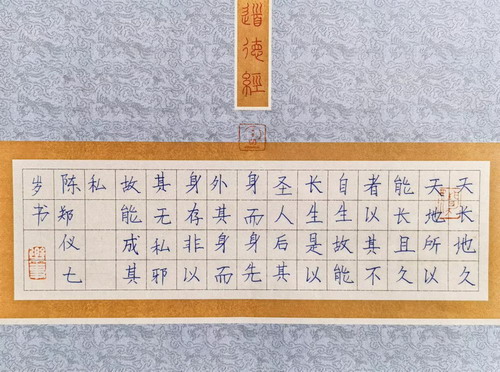 道德經
天长地久
天地所以
能长且久
者以其不
自生故能
长生是以
圣人后其
身而身先
外其身而
身存非以
其无私邪
故能成其
私
陈郑仪七
岁书